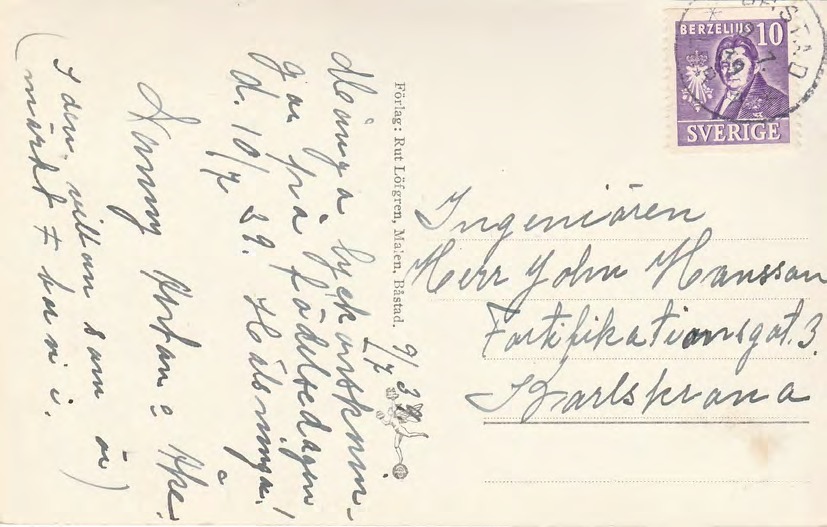 9/7 39
Många lyckönsknin-
gar på födelsedagen
d. 10/7 39. Hälsningar!
Fanny
(I den villan som är
märkt ‡ bor vi.
Förlag: Rut Löfgren, Malen, Båstad.
BERZELIUS 10
SVERIGE
BÅSTAD
Ingeniören
Herr John Hansson
Fortifikationsgat. 3.
Karlskrona